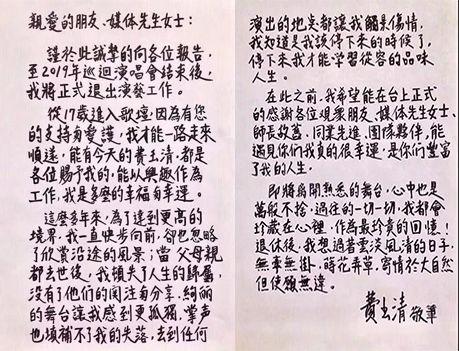 親愛的朋友、媒体先生女士：
謹於此誠摯的向各位報告，
至2019年巡迴演唱會結束後，
我將正式退出演藝工作。
從17歲進入歌壇，因為有您
的支持與愛護，我才能一路走來
順遂，能有今天的費玉清，都是
各位賜予我的，能以興趣作為
工作，我是多麼的幸福與幸運。
這麼多年來，為了達到更高的
境界，我一直快步向前，卻也忽略
了欣賞沿途的風景；當父母親
都去世後，我頓失了人生的歸屬，
沒有了他們的關注與分享，絢麗
的舞台讓我感到更孤獨，掌声
也填補不了我的失落，去到任何
演出的地点都讓我觸景傷情，
我知道是我該停下來的時候了，
停下來我才能学習從容的品味
人生。
在此之前，我希望能在台上正式
的感謝各位观衆朋友、媒体先生女士、
師長故舊、同業先進、团隊夥伴，能
遇見你們我真的很幸運，是你們豐富
了我的人生。
即將离開熟悉的舞台，心中也是
萬般不捨，過往的一切一切，我都會
珍藏在心裡，作為最珍貴的回憶！
退休後，我想過著雲淡風清的日子，
無牽無掛，蒔花弄草，寄情於大自然
但使願無違。
費玉清 敬筆